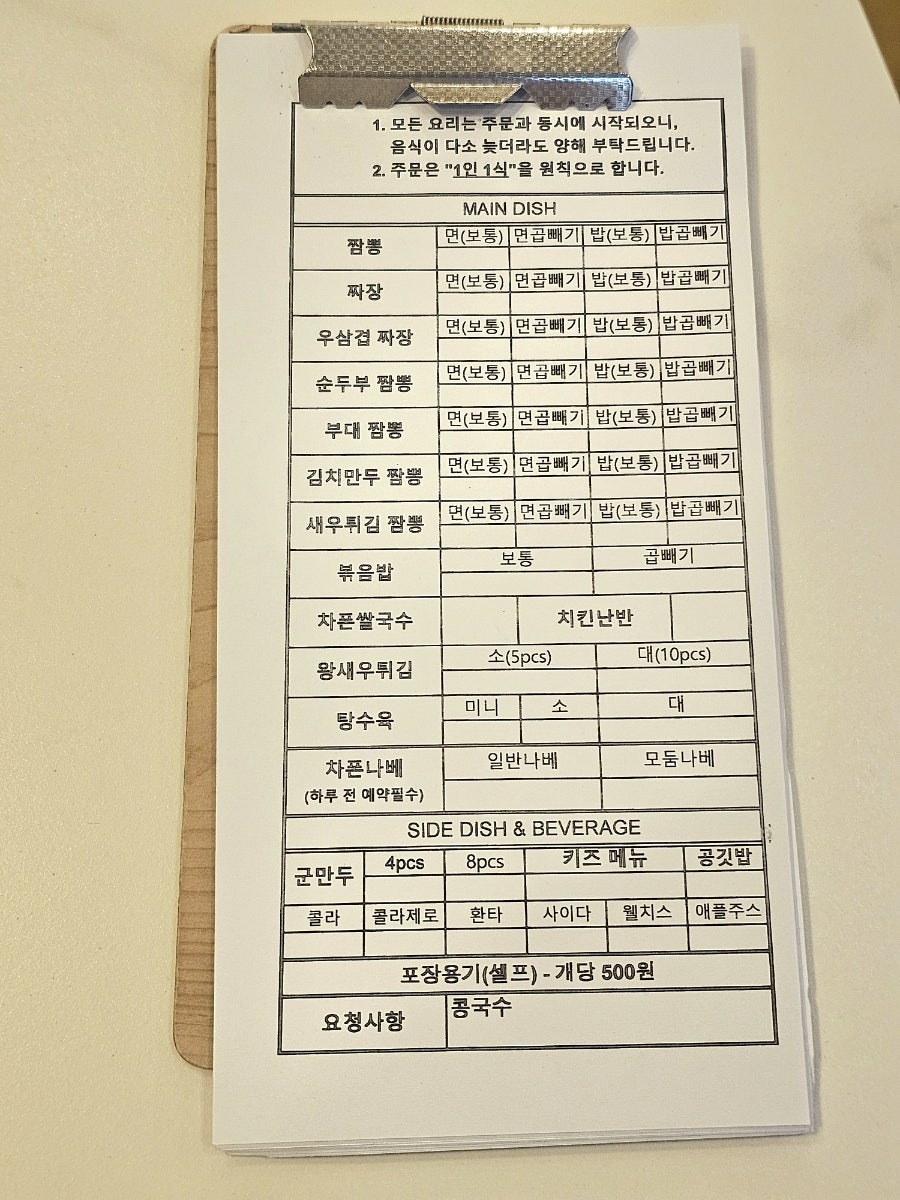 1. 모든 요리는 주문과 동시에 시작되오니,
음식이 다소 늦더라도 양해 부탁드립니다.
2. 주문은 "1인 1식"을 원칙으로 합니다.
MAIN DISH
짬뽕 면(보통) 면곱빼기 밥(보통) 밥곱빼기
짜장 면(보통) 면곱빼기 밥(보통) 밥곱빼기
우삼겹 짜장 면(보통) 면곱빼기 밥(보통) 밥곱빼기
순두부 짬뽕 면(보통) 면곱빼기 밥(보통) 밥곱빼기
부대 짬뽕 면(보통) 면곱빼기 밥(보통) 밥곱빼기
김치만두 짬뽕 면(보통) 면곱빼기 밥(보통) 밥곱빼기
새우튀김 짬뽕 면(보통) 면곱빼기 밥(보통) 밥곱빼기
볶음밥 보통 곱빼기
차픈쌀국수 치킨난반
왕새우튀김 소(5pcs) 대(10pcs)
탕수육 미니 소 대
차픈나베 일반나베 모둠나베
(하루 전 예약필수)
SIDE DISH & BEVERAGE
군만두 4pcs 8pcs 키즈 메뉴 공깃밥
콜라 콜라제로 환타 사이다 웰치스 애플주스
포장용기(셀프) - 개당 500원
요청사항 콩국수